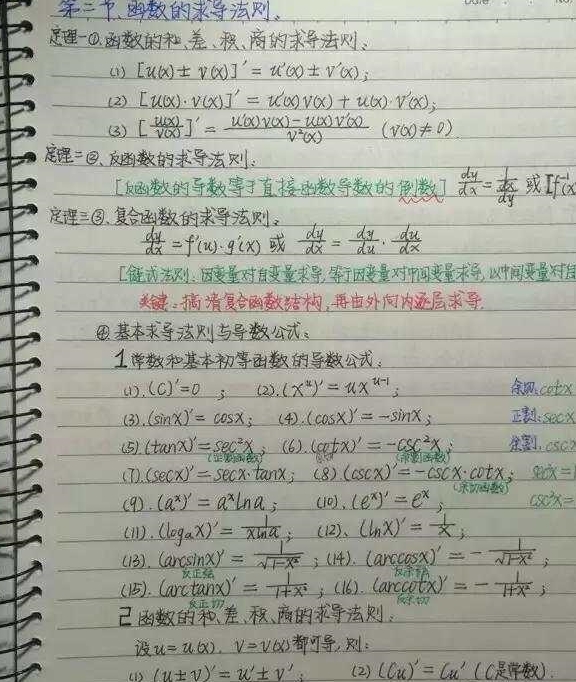 第二节、函数的求导法则。
定理一①.函数的和、差、积、商的求导法则。
(1) [u(x) ± v(x)]' = u'(x) ± v'(x);
(2) [u(x)·v(x)]' = u'(x)v(x) + u(x)·v'(x);
(3) [u(x)/v(x)]' = (u'(x)v(x) - u(x)v'(x))/v²(x) (v(x)≠0)
定理二②、反函数的求导法则:
[反函数的导数等于直接函数导数的倒数] dy/dx = 1/(dx/dy) 或 [f⁻¹(x
定理三③.复合函数的求导法则。
dy/dx = f'(u)·g'(x) 或 dy/dx = dy/du · du/dx
[链式法则:因变量对自变量求导,等于因变量对中间变量求导,以中间变量对自
关键:搞清复合函数结构,再由外向内逐层求导.
④ 基本求导法则与导数公式:
1 常数和基本初等函数的导数公式:
(1).(C)'=0 ; (2).(x^u)' = ux^(u-1); 余切:cotx
(3).(sinx)' = cosx; (4).(cosx)' = -sinx; 正割:secx
(5).(tanx)' = sec²x; (6).(cotx)' = -csc²x; 余割.cscx
(正割函数) (余割函数)
(7).(secx)' = secx·tanx; (8)(cscx)' = -cscx·cotx; sec²x=
(余切函数)
(9).(a^x)' = a^x lna; (10).(e^x)' = e^x; csc²x=
(11).(logₐx)' = 1/(xlna); (12)、(lnx)' = 1/x;
(13).(arcsinx)' = 1/√(1-x²); (14).(arccosx)' = -1/√(1-x²);
反正弦 反余弦
(15).(arctanx)' = 1/(1+x²); (16).(arccotx)' = -1/(1+x²);
反正切 反余切
2 函数的和、差、积、商的求导法则:
设u=u(x).v=v(x)都可导,则:
(1) (u±v)' = u'±v'; (2) (Cu)' = Cu' (C是常数).